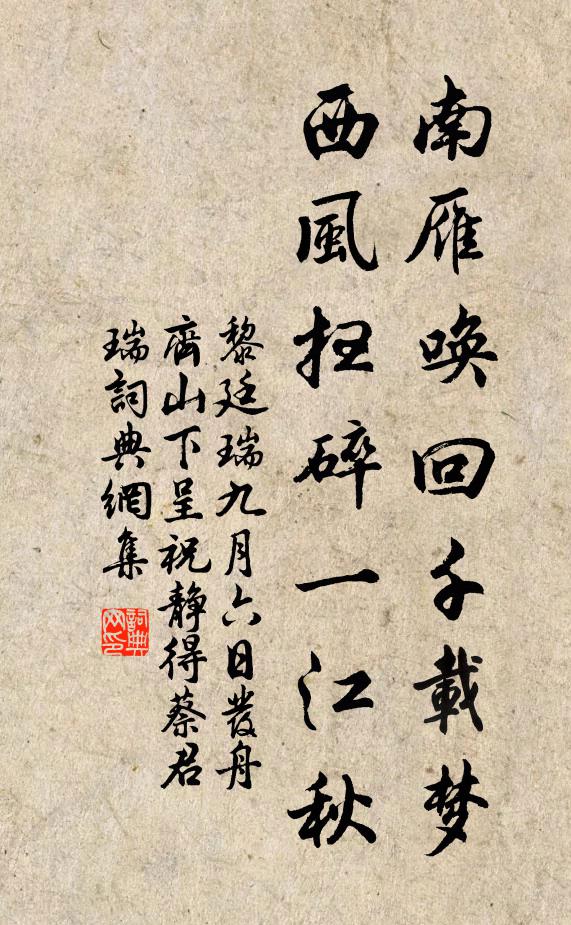 南雁唤回千載梦
西風扫碎一江秋
黎廷瑞九月六日發舟
齊山下呈祝静得蔡君
瑞詞典網集
詞典
网印